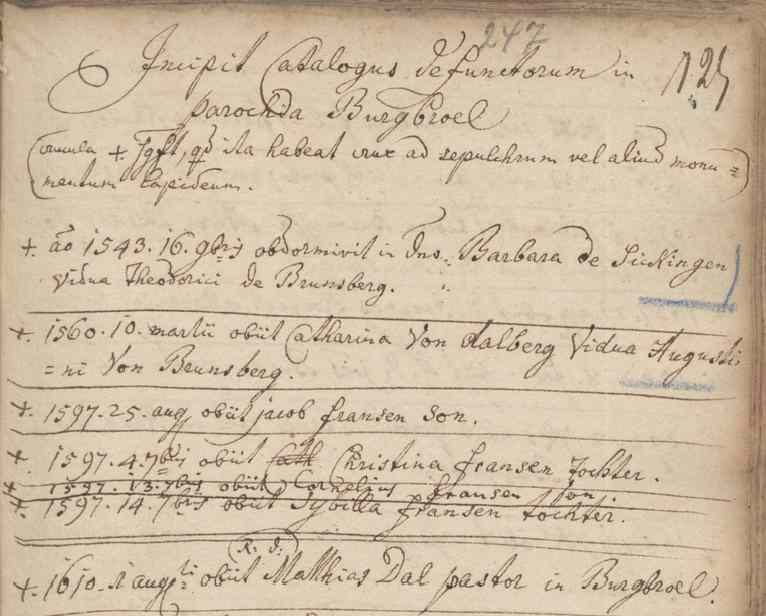 247
Incipit Catalogus defunctorum in
125
parochia Burgbroel
(crucula +. sgft, qd ita habeat crux ad sepulchrum vel aliud monu=
mentum lapideum.)
+. ao 1543. 16. 9bris obdormivit in Dno. Barbara de Sickingen
vidua Theodorici de Brunsberg.
+. 1560. 10. martii obiit Catharina Von Dalberg Vidua Augusti
=ni Von Brunsberg.
+. 1597. 25. aug obiit jacob fransen Son.
+. 1597. 4. 7bris obiit Christina fransen tochter.
+ 1597. 13. 7bris obiit Cornelius fransen son.
+. 1597. 14. 7bris obiit Sybilla fransen tochter.
(R. d.)
+. 1610. 1 augti obiit Matthias Dal pastor in Burgbroel.